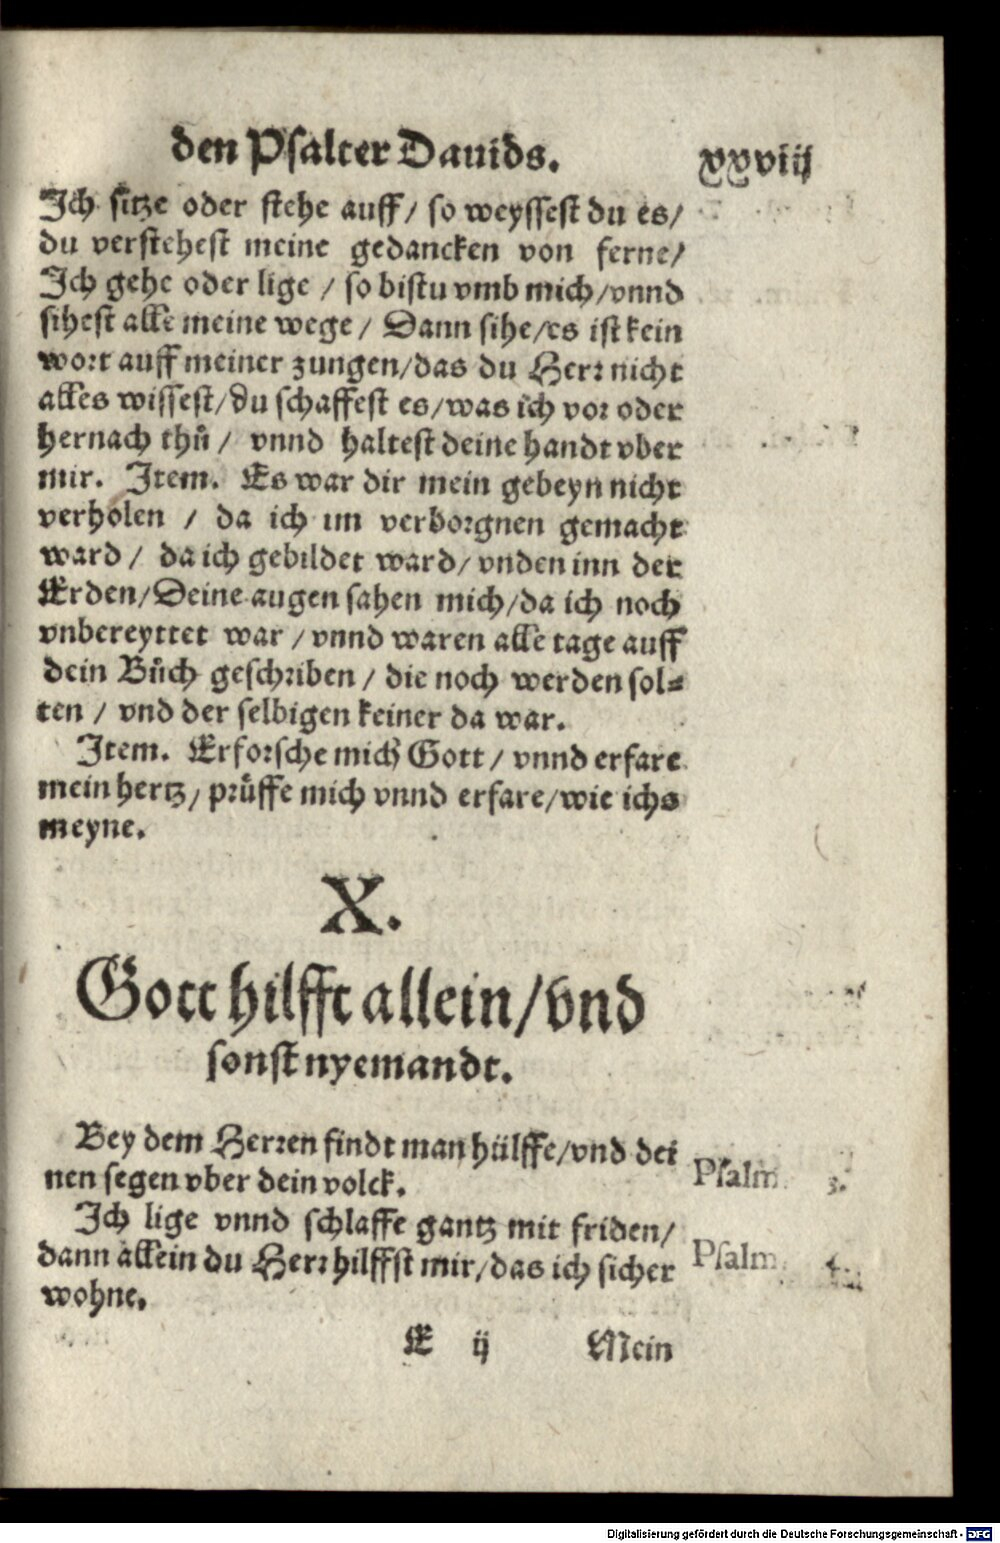 den Psalter Dauids.
xxviij
Ich sitze oder stehe auff / so weyssest du es /
du verstehest meine gedancken von ferne /
Ich gehe oder lige / so bistu vmb mich / vnnd
sihest alle meine wege / Dann sihe / es ist kein
wort auff meiner zungen / das du Herr nicht
alles wissest / du schaffest es / was ich vor oder
hernach thů / vnnd haltest deine handt vber
mir. Item. Es war dir mein gebeyn nicht
verholen / da ich im verborgnen gemacht
ward / da ich gebildet ward / vnden inn der
Erden / Deine augen sahen mich / da ich noch
vnbereyttet war / vnnd waren alle tage auff
dein Bůch geschriben / die noch werden sol⸗
ten / vnd der selbigen keiner da war.
Item. Erforsche mich Gott / vnnd erfare
mein hertz / průffe mich vnnd erfare / wie ichs
meyne.
X.
Gott hilfft allein / vnd
sonst nyemandt.
Bey dem Herren findt man hülffe / vnd dei
nen segen vber dein volck.
Psalm. 3.
Ich lige vnnd schlaffe gantz mit friden /
dann allein du Herr hilffst mir / das ich sicher
wohne.
Psalm. 4.
E ij
Mein
Digitalisierung gefördert durch die Deutsche Forschungsgemeinschaft - DFG